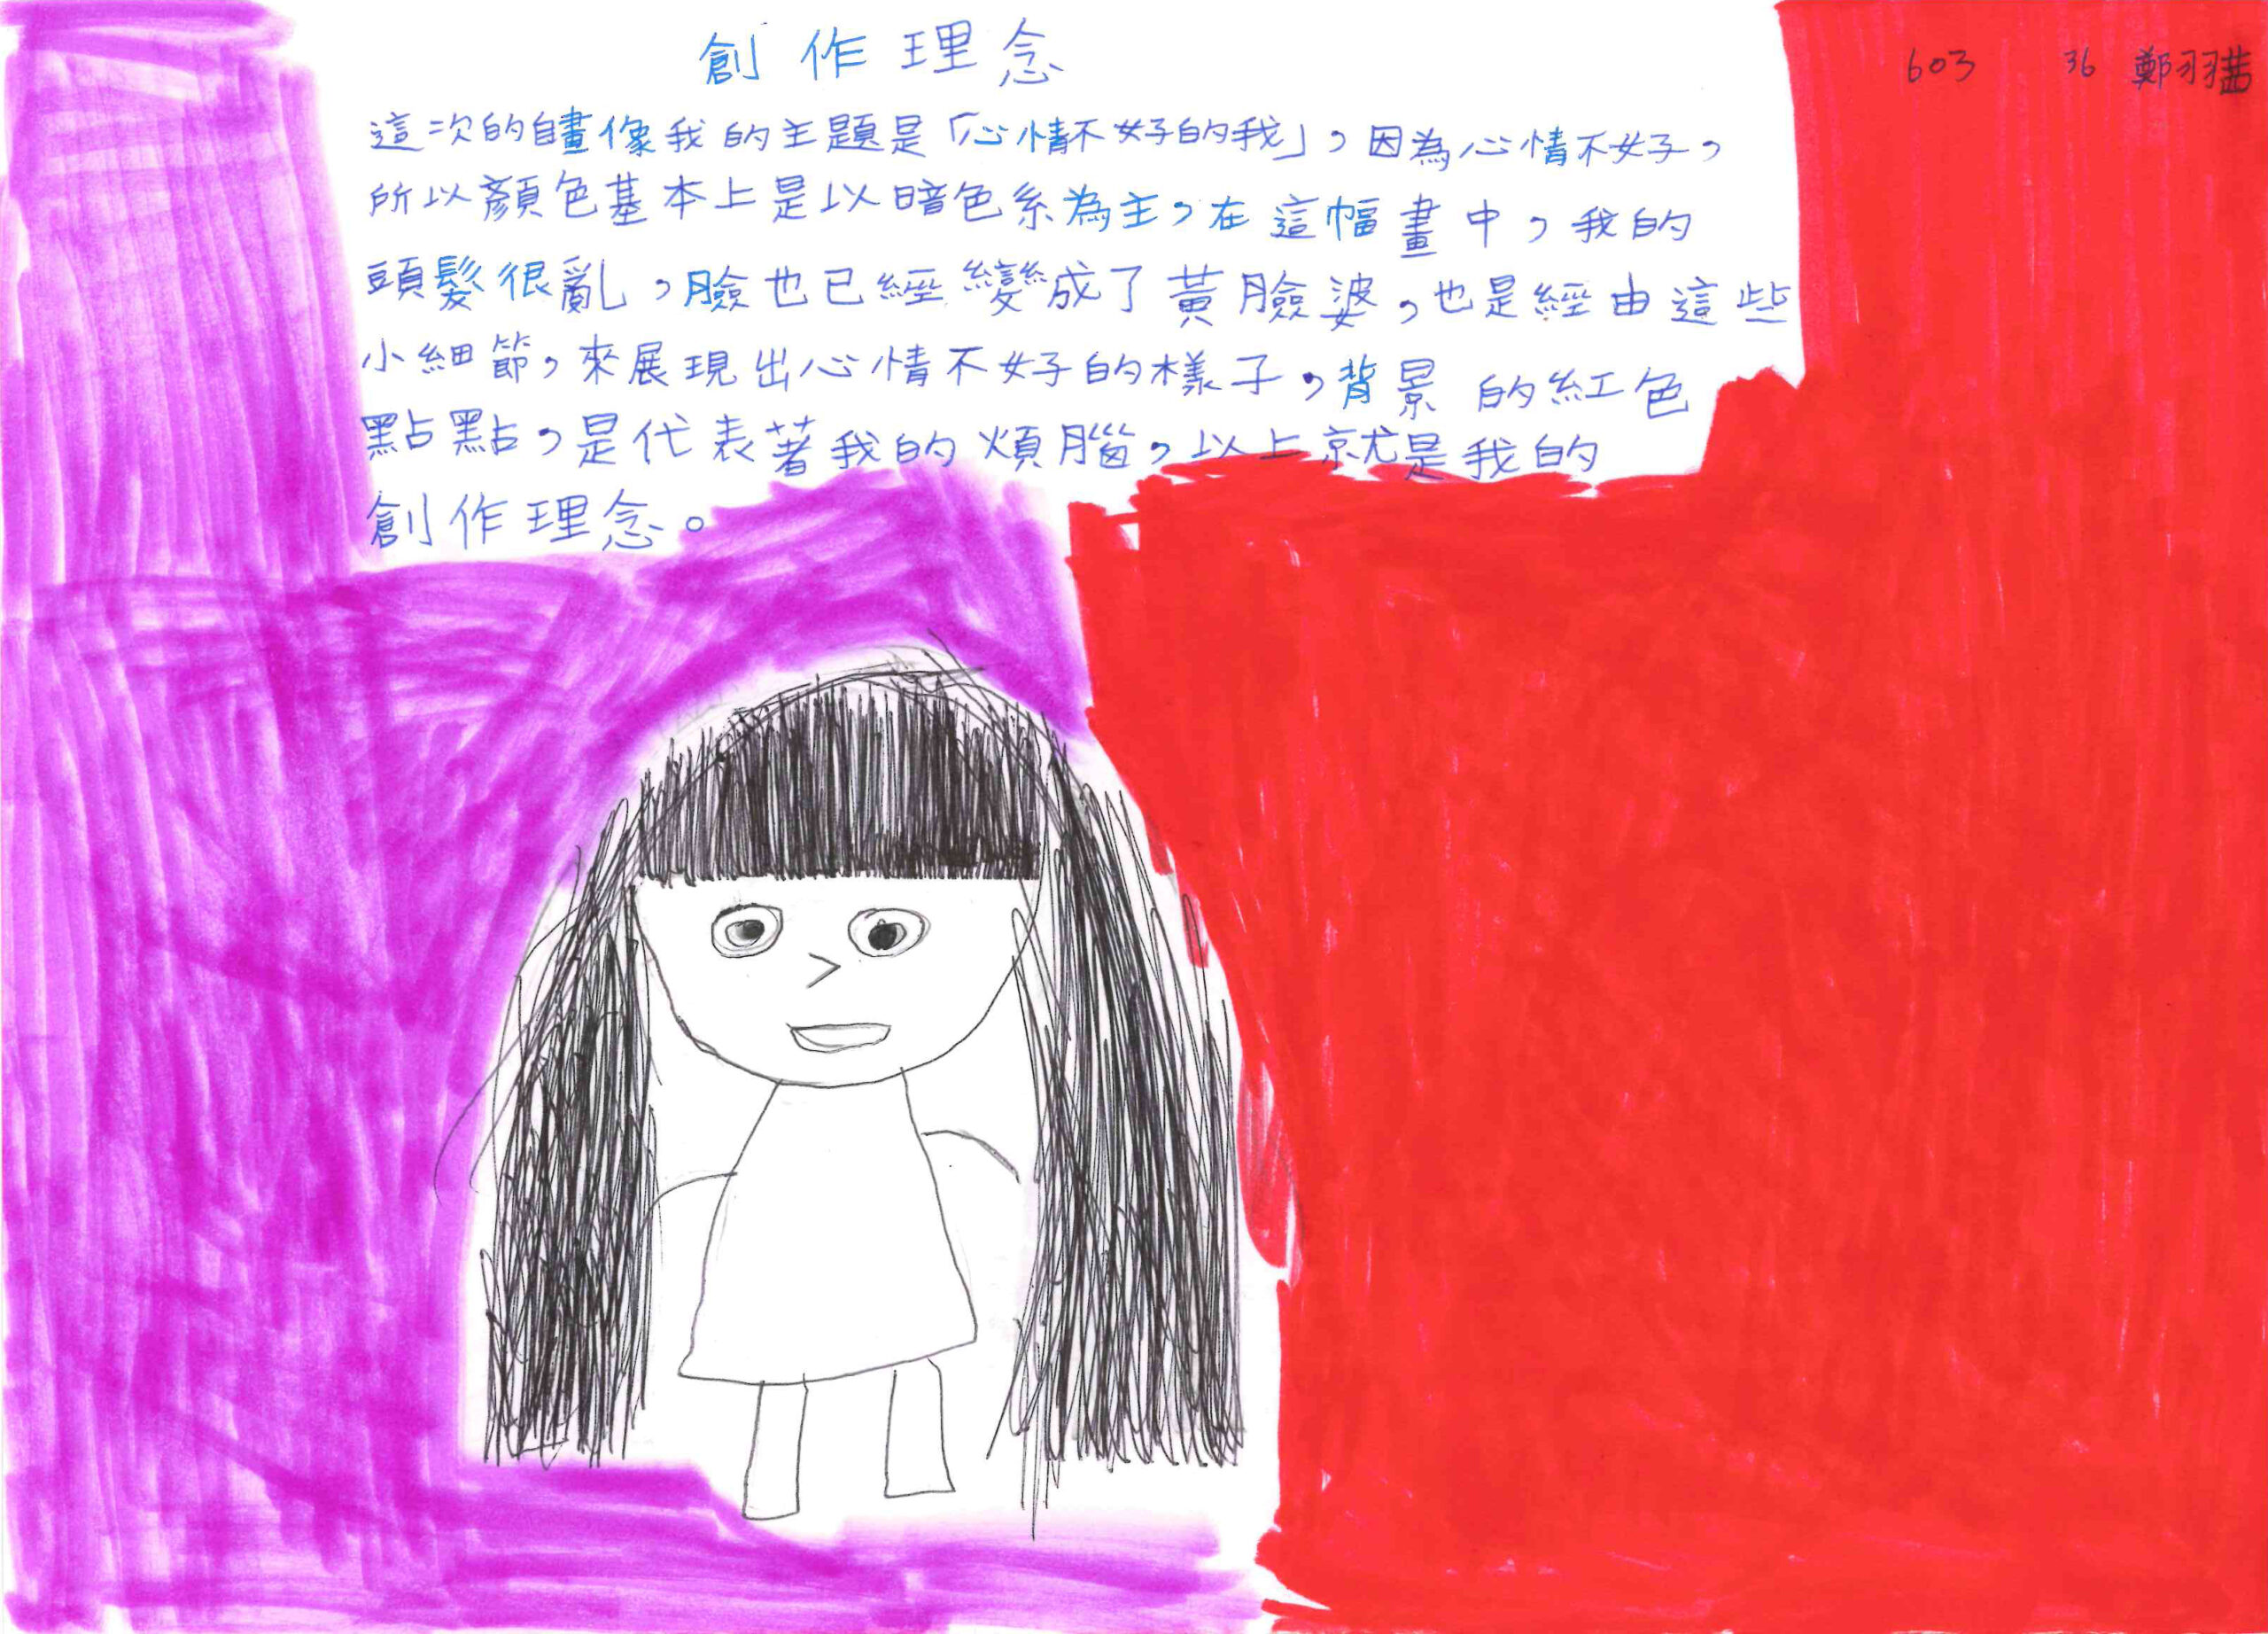 創作理念
603 36 鄭羽茜
這次的自畫像我的主題是「心情不好的我」，因為心情不好，
所以顏色基本上是以暗色系為主，在這幅畫中，我的
頭髮很亂，臉也已經變成了黃臉婆，也是經由這些
小細節，來展現出心情不好的樣子，背景的紅色
點點，是代表著我的煩腦，以上就是我的
創作理念。